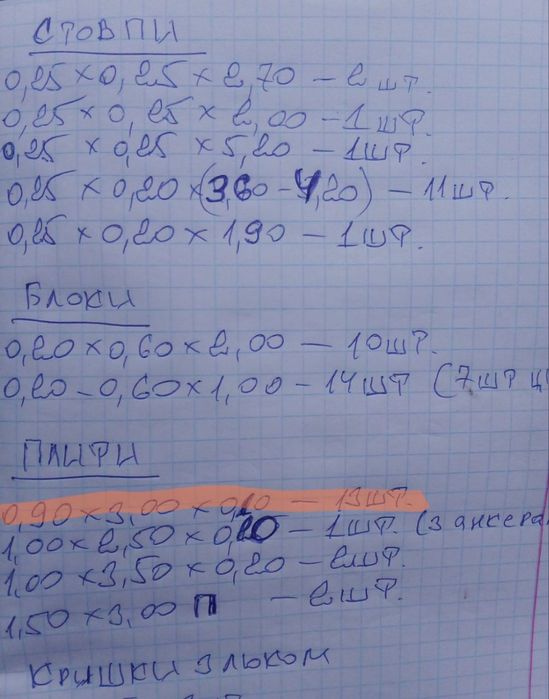 СТОВПИ
0,25 × 0,25 × 2,70 – 2 шт.
0,25 × 0,25 × 2,00 – 1 шт.
0,25 × 0,25 × 5,20 – 1 шт.
0,25 × 0,20 × (3,60 – 4,20) – 11 шт.
0,25 × 0,20 × 1,90 – 1 шт.
Блоки
0,20 × 0,60 × 2,00 – 10 шт.
0,20 – 0,60 × 1,00 – 14 шт (7 шт
ПЛИТИ
0,90 × 3,00 × 0,20 – 13 шт.
1,00 × 2,50 × 0,20 – 1 шт. (з анкера
1,00 × 3,50 × 0,20 – 2 шт.
1,50 × 3,00 П – 2 шт.
КРИШКИ З ЛЮКОМ